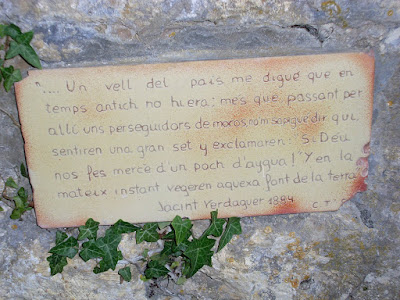 "... Un vell del pais me digué que en
temps antich no hi era; mes que passant per
allí uns perseguidors de moros, no m sapigué dir qui,
sentiren una gran set y exclamaren: Si Deu
nos fes mercé d'un poch d'aygua! Y en lo
mateix instant vegeren aquexa font de la terra
Jacint Verdaguer 1884